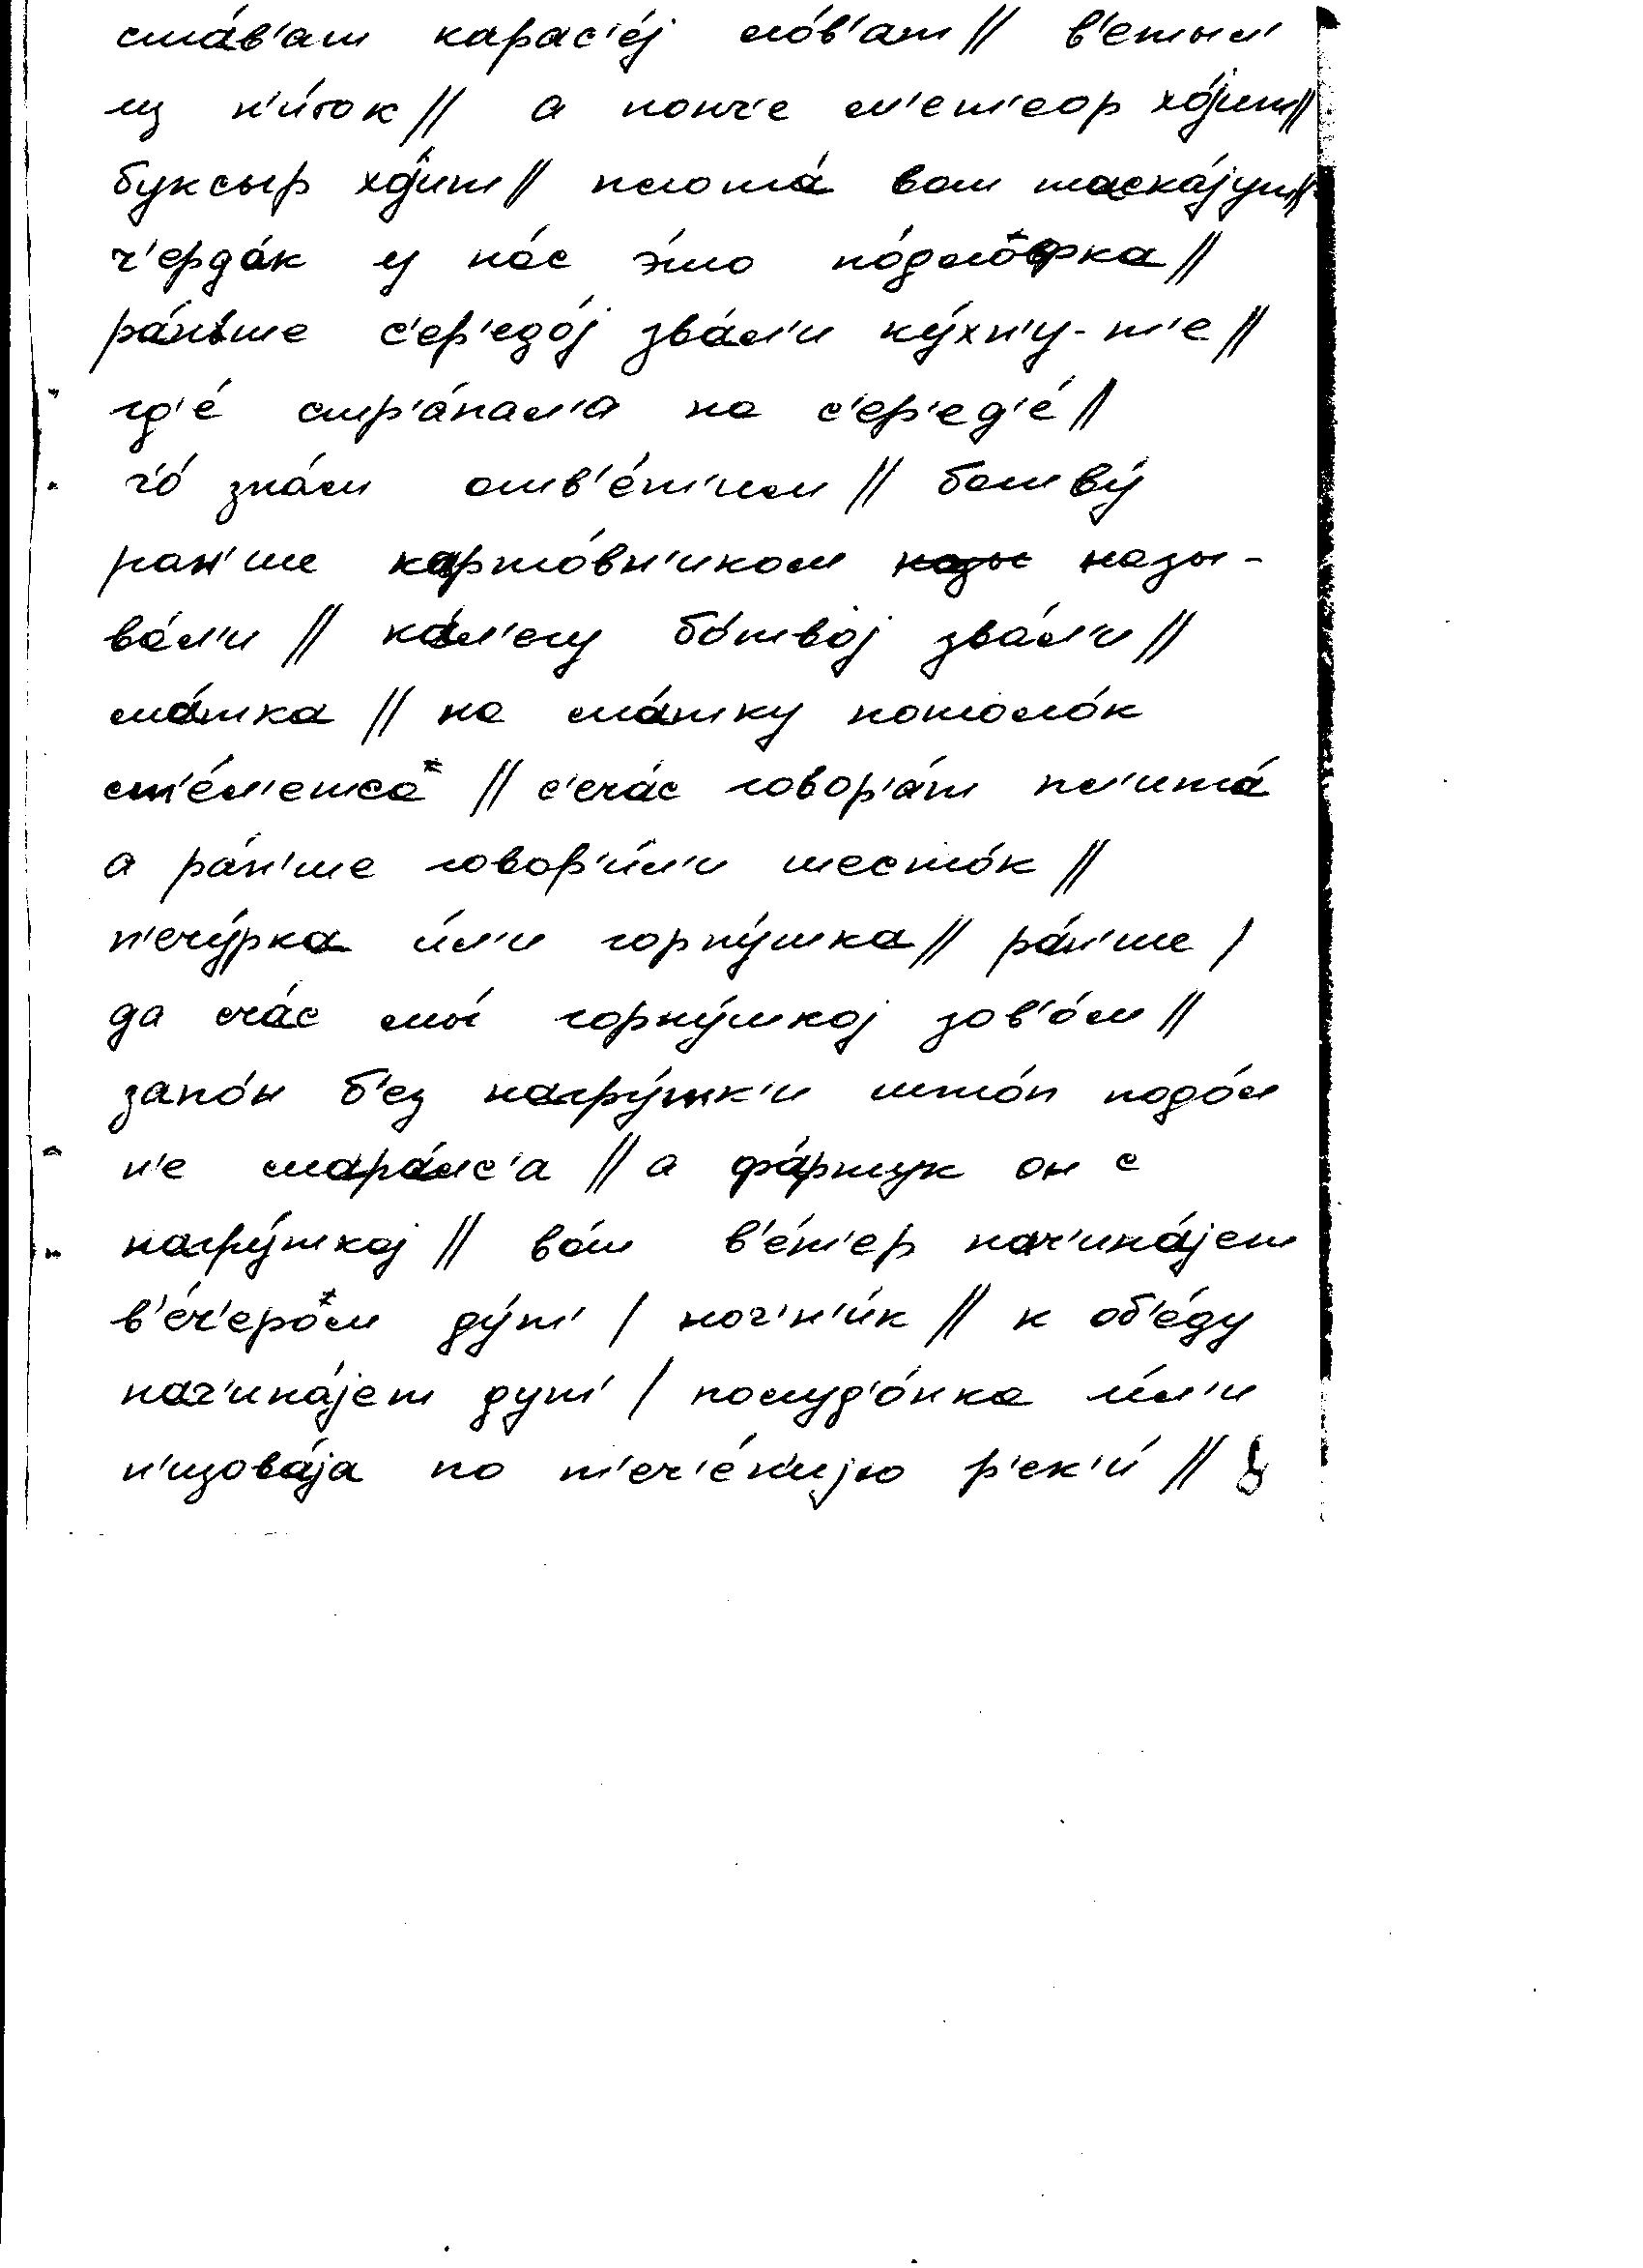 ста́в'ат карас'е́j ло́в'ат // в'етыл'
из н'и́ток // а нонч'е м'ет'еор хо́jит //
буксыр хо́jит // плота́ вот таска́jут //
ч'ерда́к у на́с э́то по́дловка //
ра́н'ше с'ер'едо́j зва́л'и ку́хн'у-т'е //
гд'е́ стр'а́пала на с'ер'ед'е́ //
ч'о́ зна́м отв'е́т'им // ботву́
ран'ше карто́вн'иком назы-
ва́л'и // ка́л'егу бо́твоj зва́л'и //
ма́тка // на ма́тку потоло́к
ст'е́л'етса // с'еча́с говор'а́т пл'ита́
а ра́н'ше говор'и́л'и шесто́к //
п'ечу́рка и́л'и горну́шка // ра́н'ше /
да сча́с мы́ горну́шкоj зов'о́м //
запо́н б'ез нагру́тк'и што́п подо́л
н'е мара́лс'а // а фа́ртук он с
нагру́ткоj // во́т в'е́т'ер нач'ина́jет
в'е́ч'ером ду́т' / ноч'н'и́к // к об'е́ду
нач'ина́jет дут' / полуд'о́нка и́л'и
н'изова́jа по т'еч'е́н'иjю р'ек'и́ //